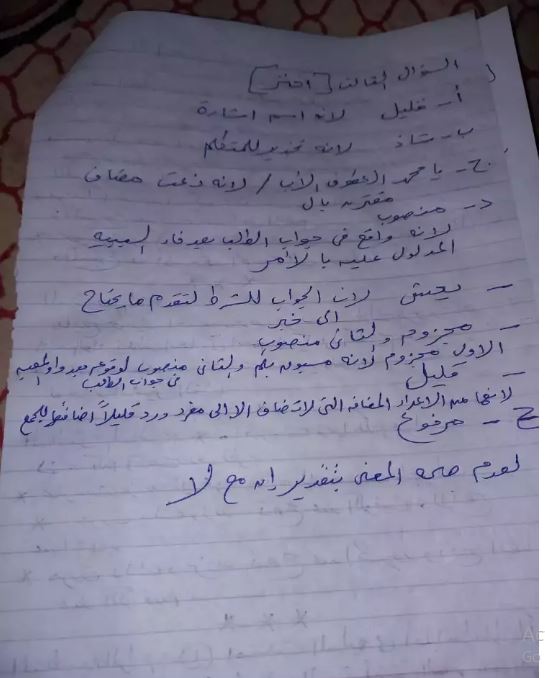 السؤال الثالث [اختر]
أ- قليل لانه اسم اشارة
ب- شاذ لانه تحذير للمتكلم
ج- يا محمد العطوف الأب / لانه نعت مضاف
مقترن بال
د- منصوب
لانه واقع فى جواب الطلب بعد فاء السببيه
المدلول عليه بالامر
- يعش لان الجواب للشرط لتقدم ما يحتاج
الى خبر
- مجزوم والثانى منصوب
الاول مجزوم لأنه مسبوق بلم والثانى منصوب لوقوعه بعد واو المعيه
فى جواب الطلب
- قليل
لانها من الاعداد المضافه التى لا تضاف الا الى مفرد ورد قليلاً اضافتها للجمع
ح - مرفوع
لعدم صحه المعنى بتقدير إن مع لا